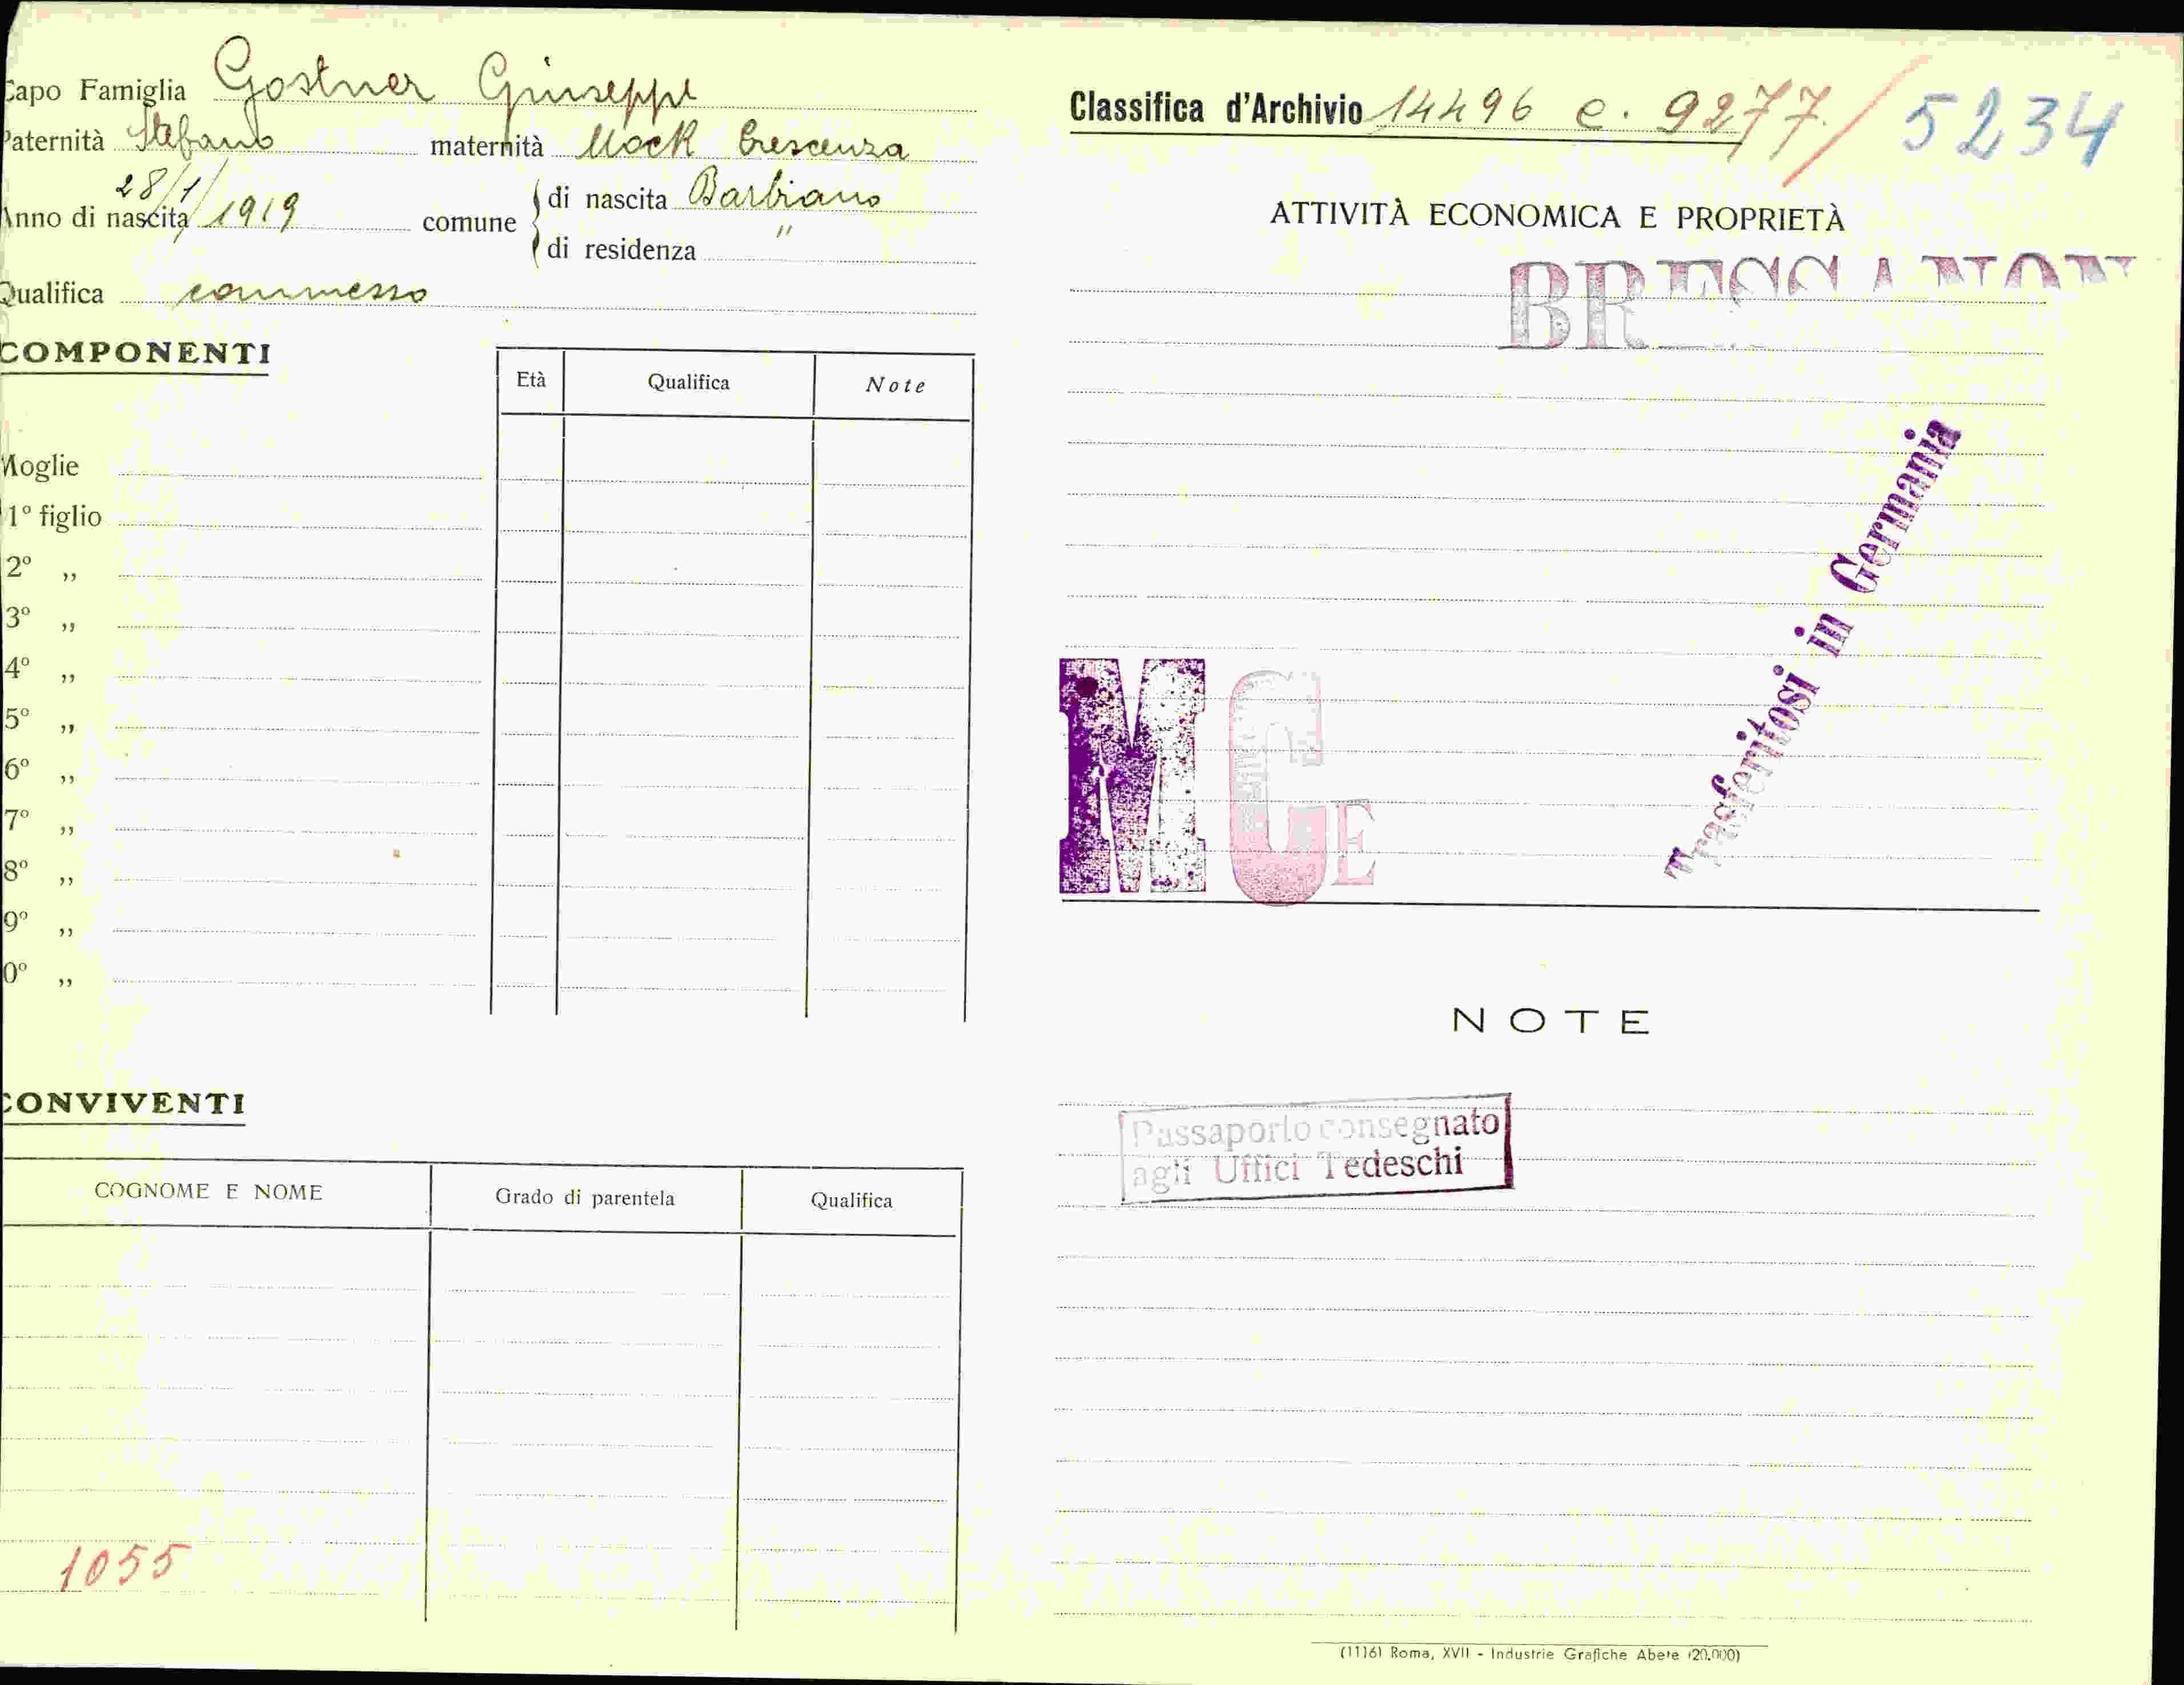 Capo Famiglia Gostner Giuseppe
Paternità Stefano maternità Mock Crescenza
28/1/
Anno di nascita 1919 comune di nascita Barbiano
di residenza "
Qualifica commesso
COMPONENTI
Età Qualifica Note
Moglie
1º figlio
2º „
3º „
4º „
5º „
6º „
7º „
8º „
9º „
0º „
CONVIVENTI
COGNOME E NOME Grado di parentela Qualifica
1055
Classifica d'Archivio 14496 e. 9277/ 5234
ATTIVITÀ ECONOMICA E PROPRIETÀ
BRESSANON
Trasferitosi in Germania
M G E
NOTE
Passaporto consegnato
agli Uffici Tedeschi
(1116) Roma, XVII - Industrie Grafiche Abete (20.000)